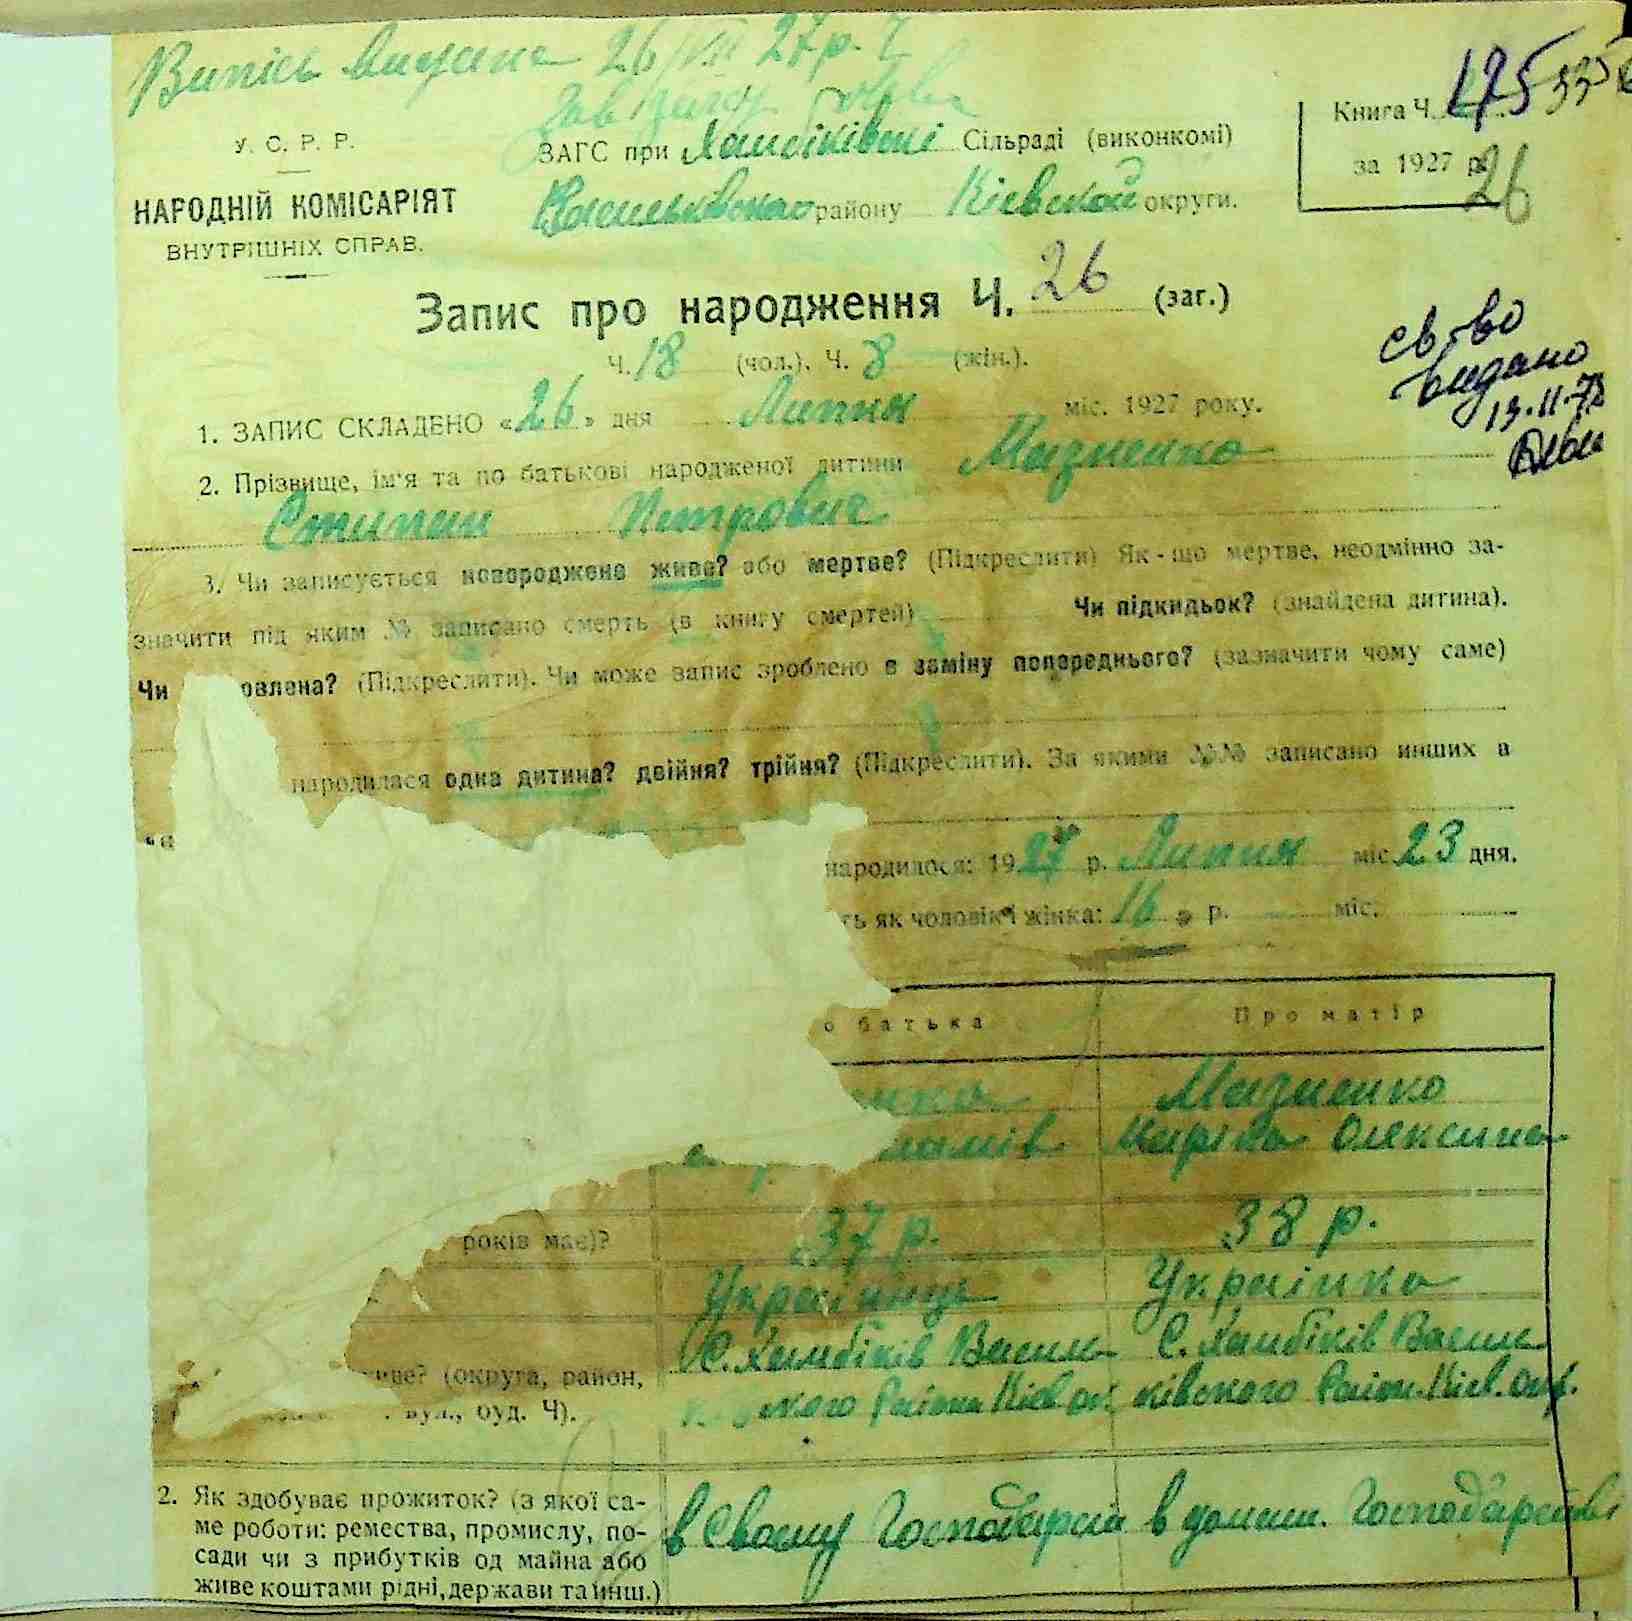 Випись видана 26/VII 27 р.
У. С. Р. Р.
НАРОДНІЙ КОМІСАРІЯТ
ВНУТРІШНІХ СПРАВ.
ЗАГС при Хамбіківскі Сільраді (виконкомі)
Васильковского району Кіевской округи.
Книга Ч. 175
за 1927 р.
26
Запис про народження Ч. 26 (заг.)
Ч. 18 (чол.). Ч. 8 (жін.).
св-во
видано
13.11.73
1. ЗАПИС СКЛАДЕНО «26» дня Липня міс. 1927 року.
2. Прізвище, ім'я та по батькові народженої дитини Мазненко
Степан Петрович
3. Чи записується новороджене живе? або мертве? (Підкреслити) Як-що мертве, неодмінно за-
значити під яким № записано смерть (в книгу смертей) Чи підкидьок? (знайдена дитина).
Чи овлена? (Підкреслити). Чи може запис зроблено в заміну попереднього? (зазначити чому саме)
народилася одна дитина? двійня? трійня? (Підкреслити). За якими №№ записано инших в
народилося: 1927 р. Липня міс. 23 дня.
ть як чоловік і жінка: 16 р. міс.
о батька Про матір
енко Мазненко
ламів Марія Олексина
років має)? 37 р. 38 р.
Українець Українка
С. Хамбіків Василь С. Хамбіків Васил
ще? (округа, район, кского Район Кіев. ок. ківского Район. Кіев. окр.
вул., буд. Ч).
2. Як здобуває прожиток? (з якої са-
ме роботи: ремества, промислу, по-
сади чи з прибутків од майна або
живе коштами рідні, держави та инш.)
в Своему Господарстві в домаш. Господарстві